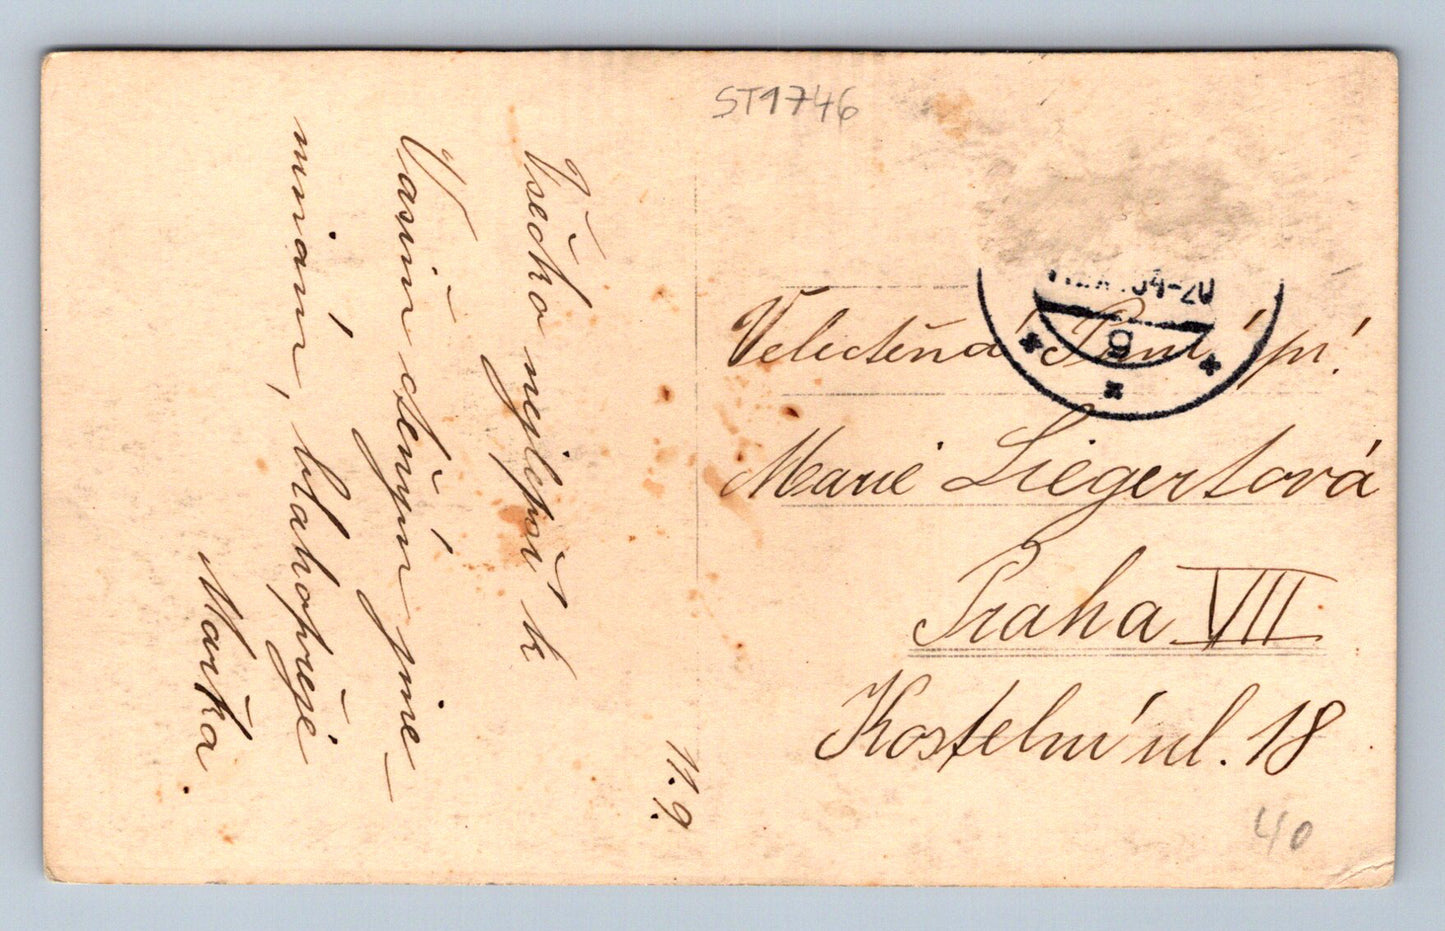 ST1746
Všecko nejlepší k
Vašim ctěným jme-
ninám, blahopřeje
Mařka.
11.9.
Velectěná Paní, pí.
Marie Liegertová
Praha VII
Kostelní ul. 18
40